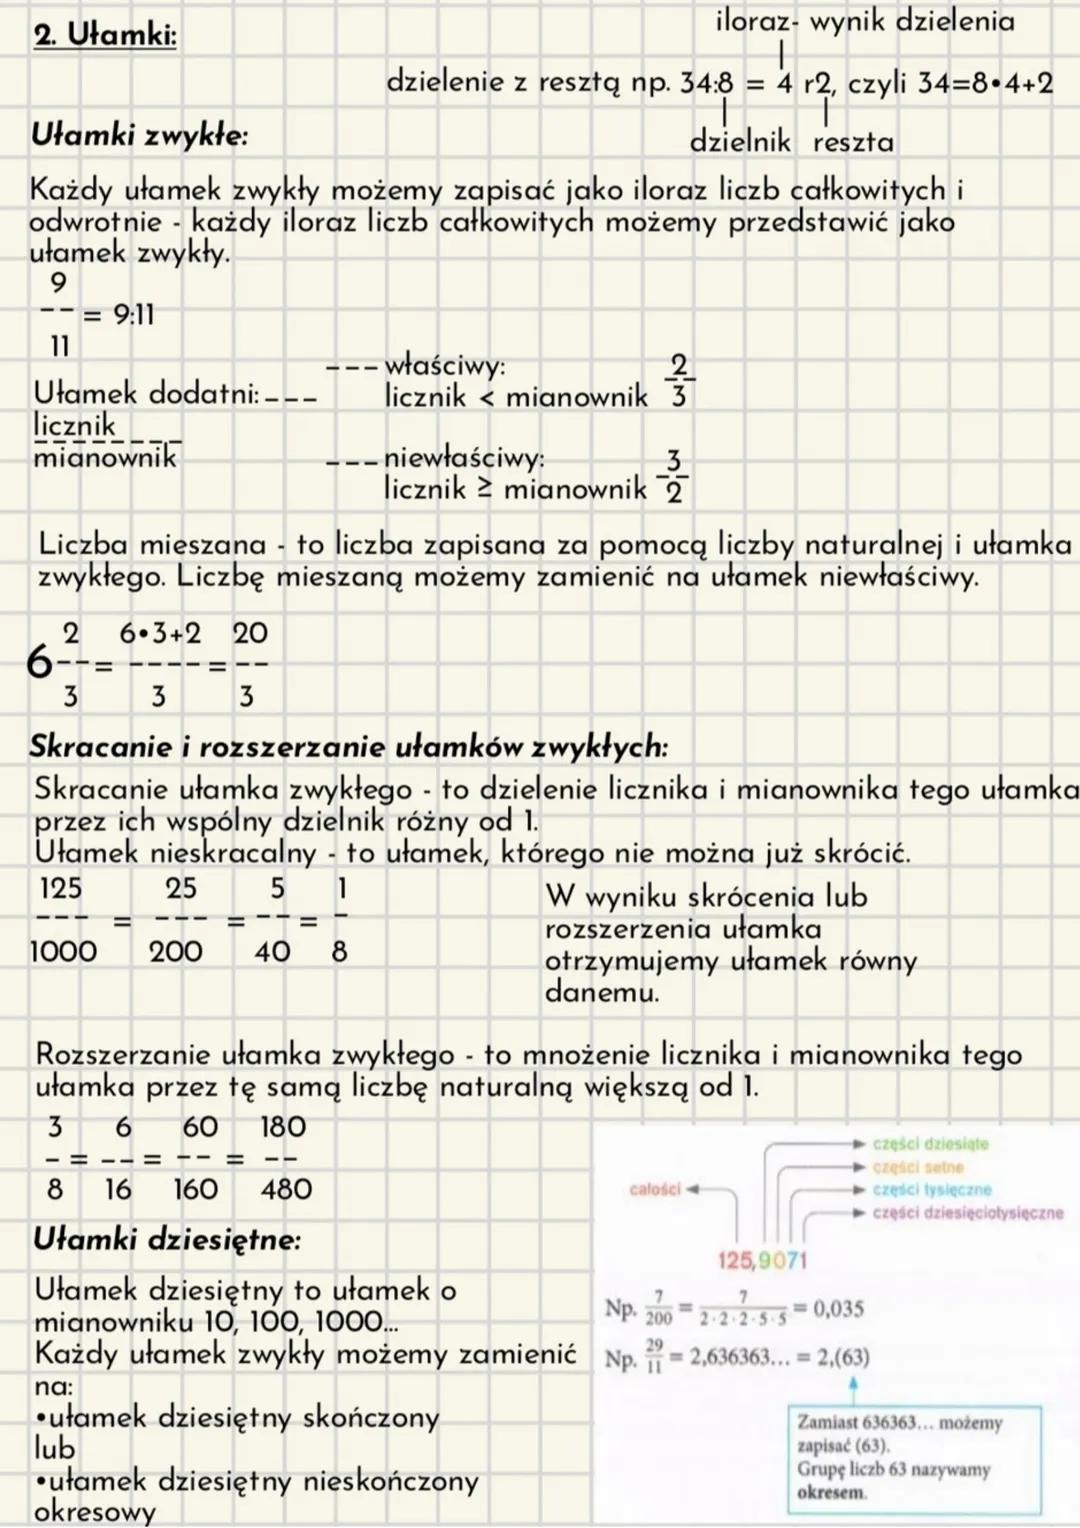 2. Ułamki:
iloraz- wynik dzielenia
dzielenie z resztą np. 34:8 = 4 r2, czyli 34=8•4+2
dzielnik reszta
Ułamki zwykłe:
Każdy ułamek zwykły możemy zapisać jako iloraz liczb całkowitych i
odwrotnie - każdy iloraz liczb całkowitych możemy przedstawić jako
ułamek zwykły.
9
-- = 9:11
11
--- właściwy: 2
Ułamek dodatni: --- licznik < mianownik 3
licznik
--------
mianownik
--- niewłaściwy: 3
licznik ≥ mianownik 2
Liczba mieszana - to liczba zapisana za pomocą liczby naturalnej i ułamka
zwykłego. Liczbę mieszaną możemy zamienić na ułamek niewłaściwy.
2 6•3+2 20
6--= ----=--
3 3 3
Skracanie i rozszerzanie ułamków zwykłych:
Skracanie ułamka zwykłego - to dzielenie licznika i mianownika tego ułamka
przez ich wspólny dzielnik różny od 1.
Ułamek nieskracalny - to ułamek, którego nie można już skrócić.
125 25 5 1
--- = --- = -- = -
1000 200 40 8
W wyniku skrócenia lub
rozszerzenia ułamka
otrzymujemy ułamek równy
danemu.
Rozszerzanie ułamka zwykłego - to mnożenie licznika i mianownika tego
ułamka przez tę samą liczbę naturalną większą od 1.
3 6 60 180
- = -- = -- = --
8 16 160 480
Ułamki dziesiętne:
Ułamek dziesiętny to ułamek o
mianowniku 10, 100, 1000...
Każdy ułamek zwykły możemy zamienić
na:
•ułamek dziesiętny skończony
lub
•ułamek dziesiętny nieskończony
okresowy
części dziesiąte
części setne
całości
części tysięczne
części dziesięciotysięczne
125,9071
Np. 7/200 = 7/2·2·2·5·5 = 0,035
Np. 29/11 = 2,636363... = 2,(63)
Zamiast 636363... możemy
zapisać (63).
Grupę liczb 63 nazywamy
okresem.